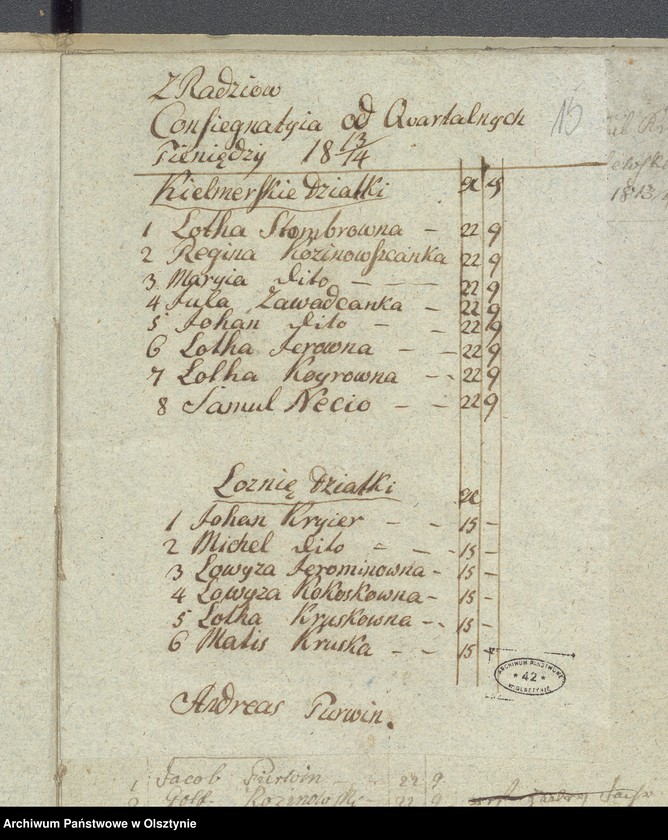 Z Radziow
Consiegnatyia od Qvartalnych
Pieniędzy 18 13/14
15
Kielmerskie Dziatki
1 Lotha Stombrowna – 22 9
2 Regina Kozinowszcanka 22 9
3 Maryia dito – – – 22 9
4 Jula Zawadcanka – 22 9
5 Johan dito – – 22 9
6 Lotha Jerowna – – 22 9
7 Lotha Koyrowna – – 22 9
8 Samul Necio – – 22 9
Loznię Dziatki
1 Johan Kryier – – 15 –
2 Michel dito – – 15 –
3 Lowyza Jerominowna – 15 –
4 Lowyza Kokoskowna – 15 –
5 Lotha Kruskowna – – 15 –
6 Matis Kruska – – 15 –
ARCHIWUM PAŃSTWOWE
* 42 *
W OLSZTYNIE
Andreas Purwin.
1 Jacob Purwin – 22 9
2 Gott. Kozinowski 22 9
1813/
Archiwum Państwowe w Olsztynie